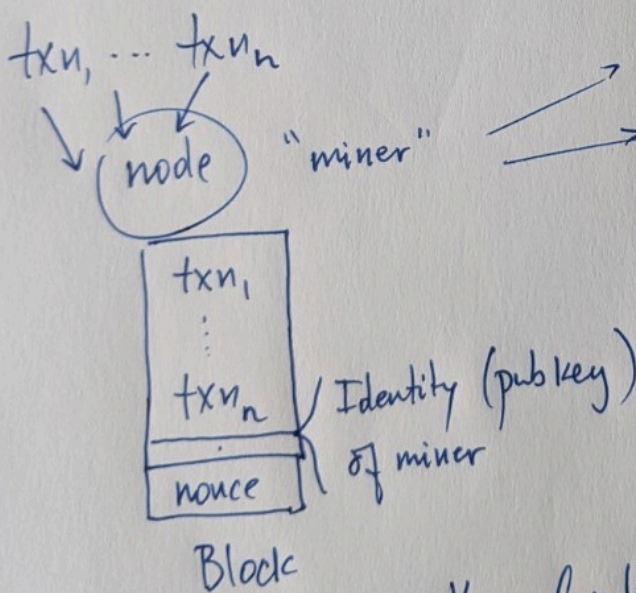 txn₁ ... txnₙ
node "miner"
txn₁
⋮
txnₙ
Identity (pubkey)
of miner
nonce
Block